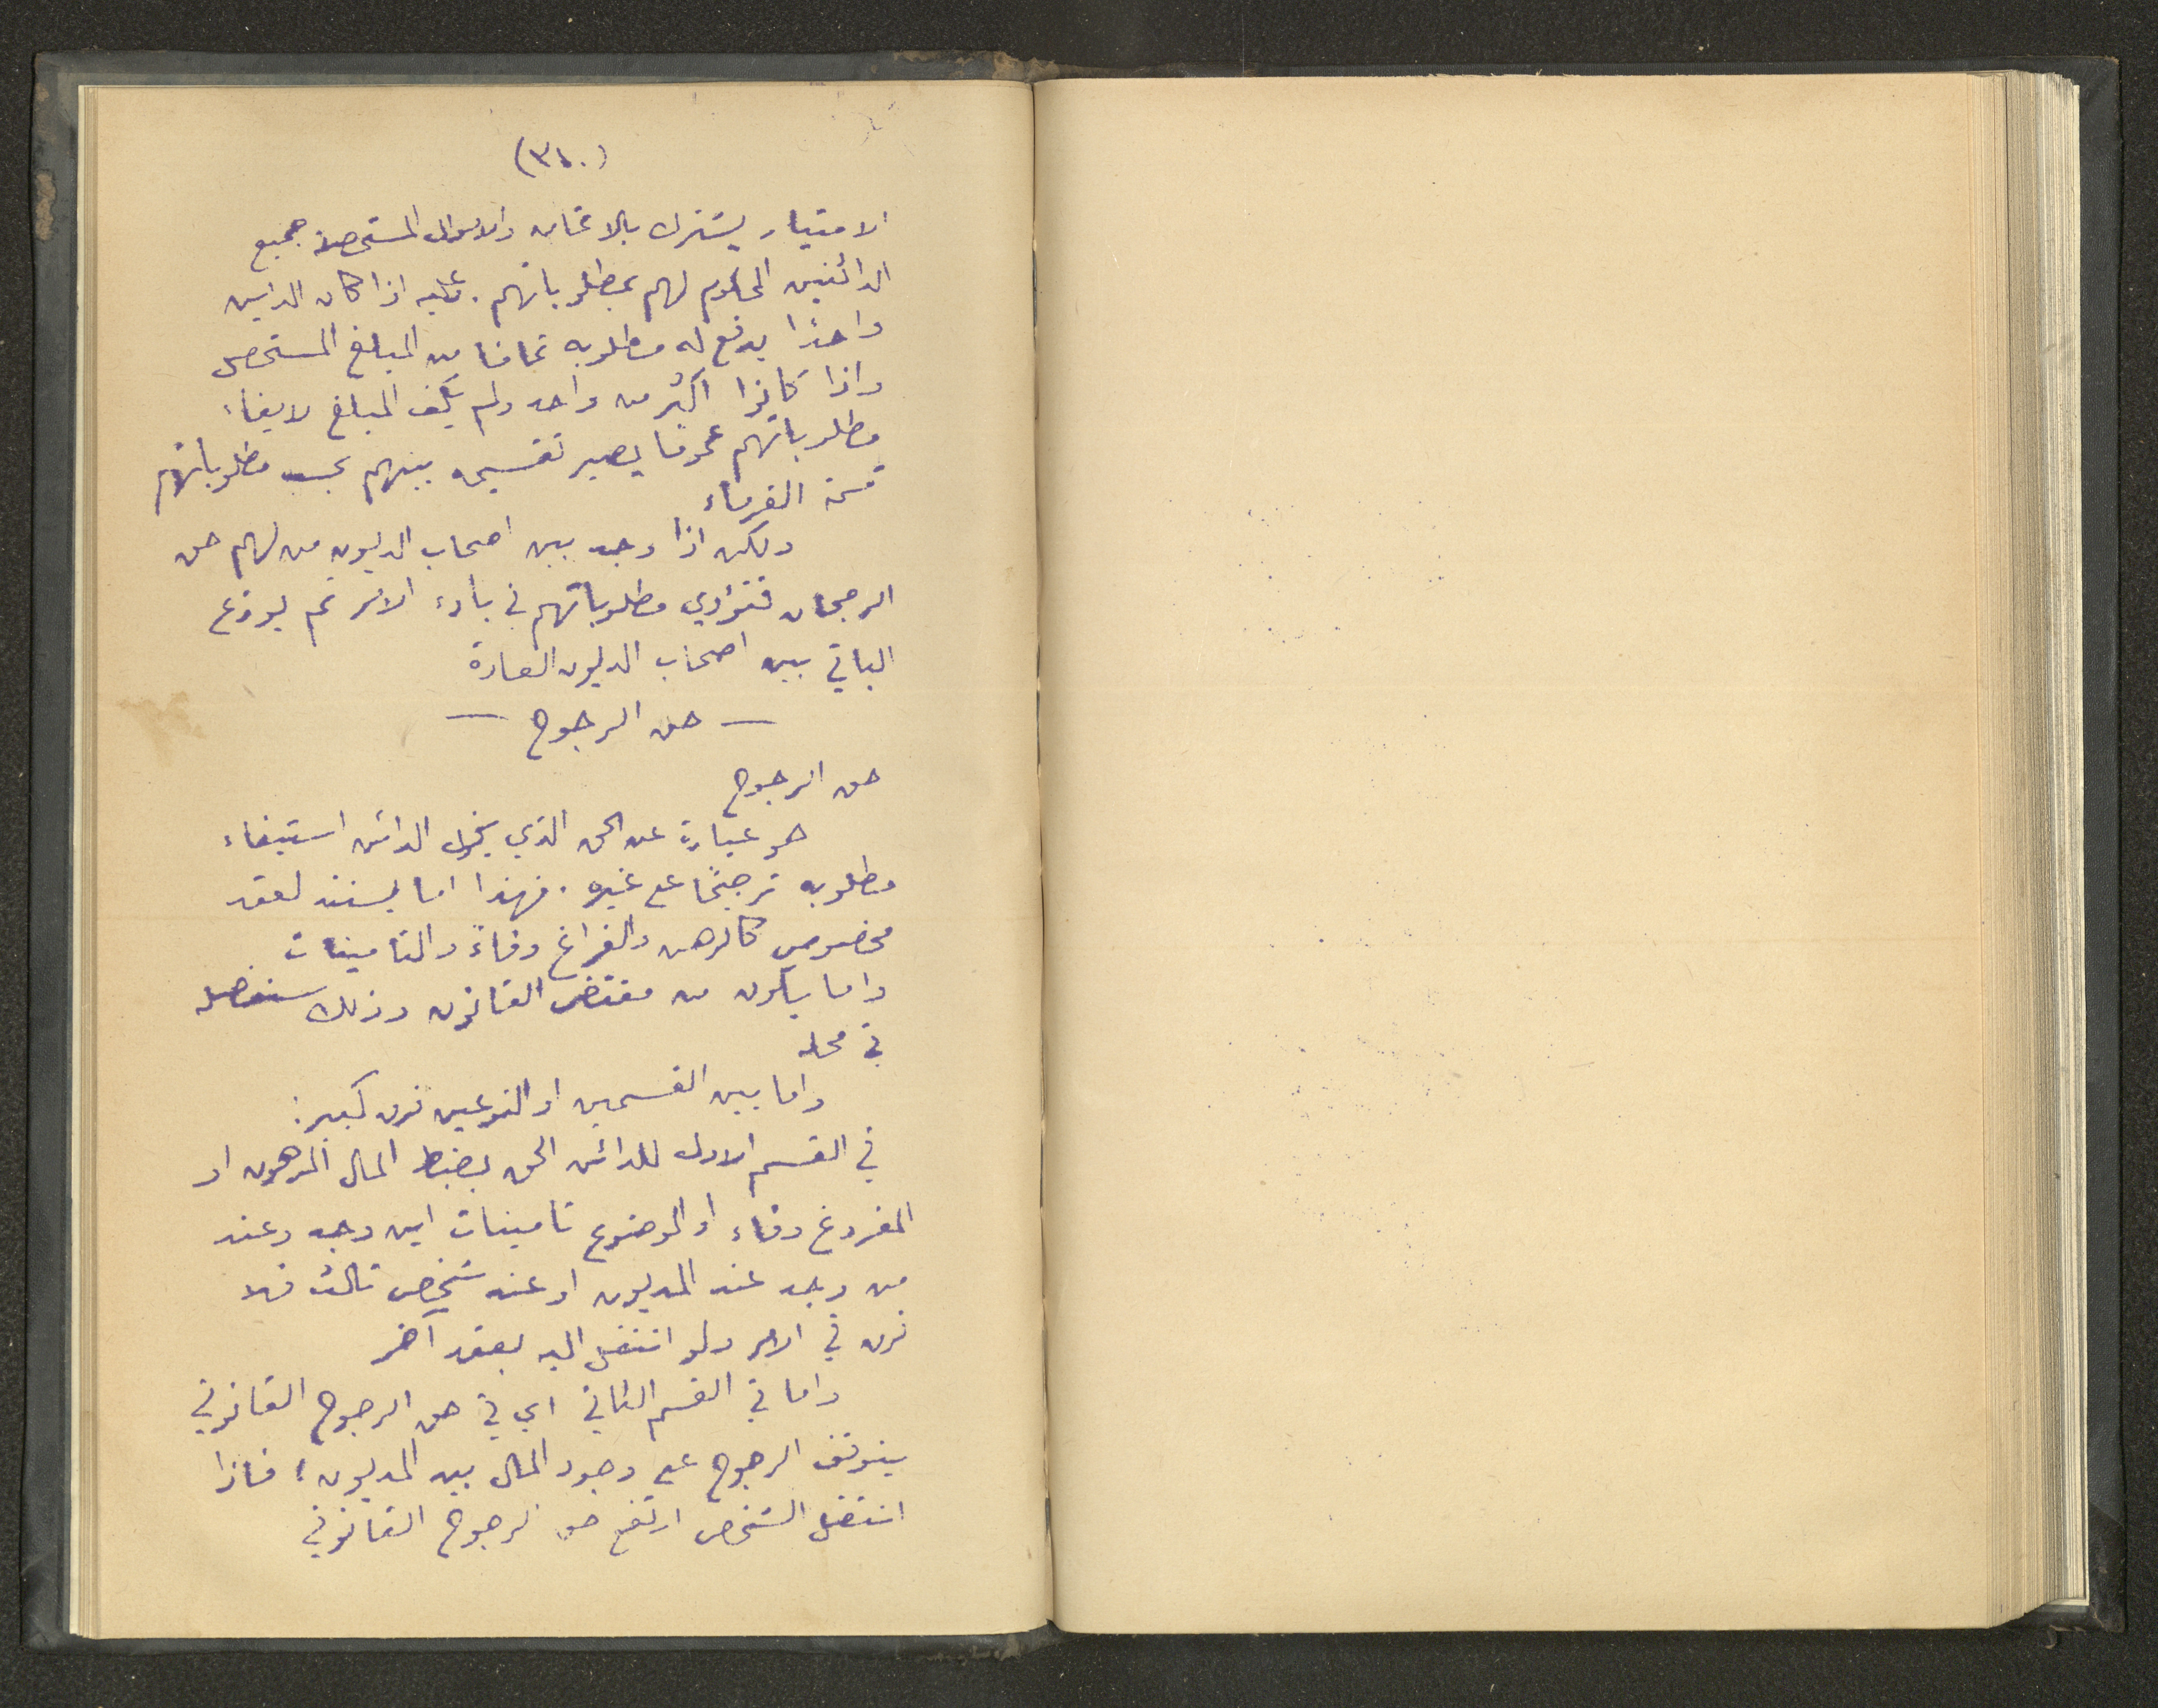 (٣١٠)
الامتياز يشترك بالاثمان والاموال المستحصلة جميع
الدائنين المحكوم لهم بمطلوباتهم. وعليه اذا كان الداين
واحدًا يدفع له مطلوبه تمامًا من المبلغ المستحصل
واذا كانوا اكثر من واحد ولم يكف المبلغ لايفاء
مطلوباتهم عمومًا يصير تقسيمه بينهم بحسب مطلوباتهم
قسمة الغرماء
ولكن اذا وجد بين اصحاب الديون من لهم حق
الرجحان فتؤدي مطلوباتهم في بادء الامر ثم يوزع
الباقي بين اصحاب الديون العادة
— حق الرجوح —
حق الرجوح
هو عبارة عن الحق الذي يخول الدائن استيفاء
مطلوبه ترجيحًا على غيره. فهذا اما يستند لعقد
مخصوص كالرهن والفراغ وفاءً والتامينات
واما يكون من مقتضى القانون وذلك سنفصله
في محله
واما بين القسمين او النوعين فرق كبير:
في القسم الاول للدائن الحق بضبط المال المرهون او
المفروغ وفاء او الموضوع تامينات اين وجد وعند
من وجد عند المديون او عند شخص ثالث فلا
فرق في الامر ولو انتقل اليه بعقد آخر
واما في القسم الثاني اي في حق الرجوح القانوني
يتوقف الرجوح على وجود المال بيد المديون؛ فاذا
انتقل لشخص ارتفع حق الرجوح القانوني